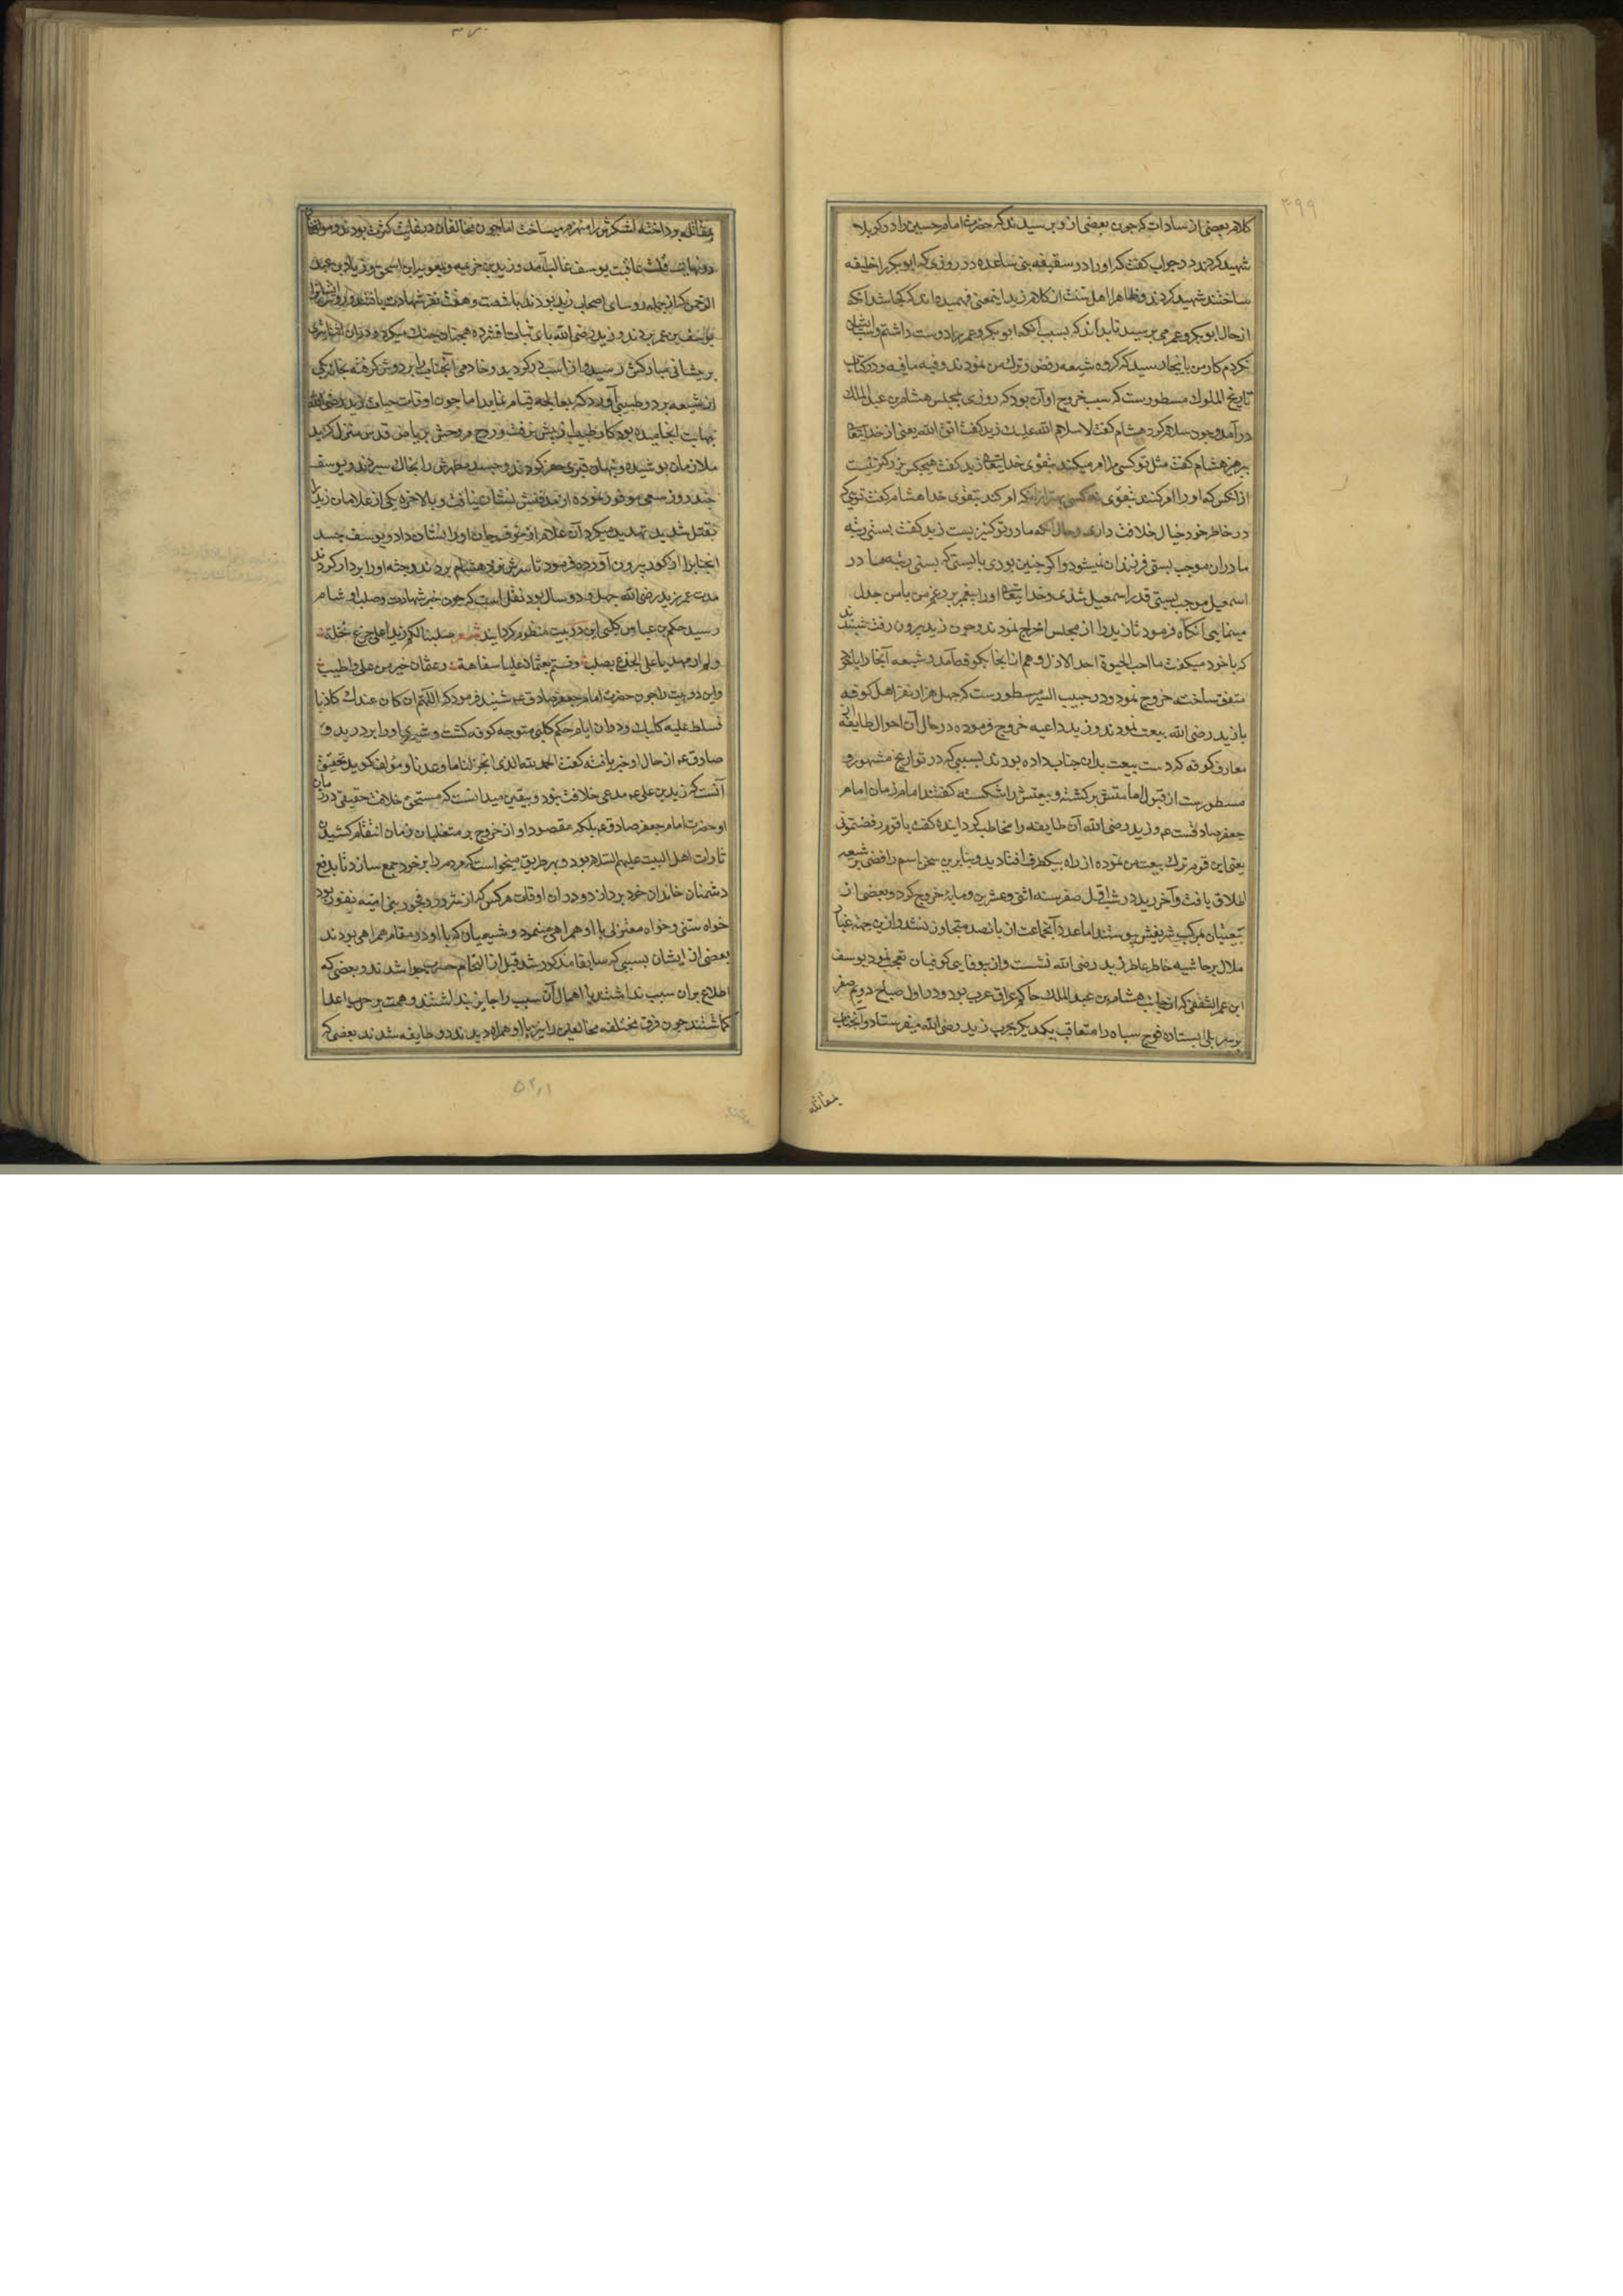 ۳۹۹
کلام بعضی از سادات که چون بعضی از و پرسیدند که حضرت امام حسین را در کربلا
شهید کردند در جواب گفت که او را در سقیفه بنی ساعده در روزی که ابوبکر را خلیفه
ساختند شهید کردند و ظاهرا اهل سنت از کلام زید اینمعنی فهمیده اند که کجا شد آنکه
از حال ابوبکر و عمر می پرسید تا بداند که بسبب آنکه ابوبکر و عمر را دوست داشتم و
نکردم کار من باینجا رسید که گروه شیعه رفض و ترک من نمودند و فیه مافیه و در کتاب
تاریخ الملوک مسطورست که سبب خروج او آن بود که روزی بمجلس هشام بن عبدالملک
درآمد و چون سلام کرد هشام گفت لا سلام الله علیک زید گفت اتق الله یعنی از خدایتعالی
بپرهیز هشام گفت مثل تو کسی مرا امر میکند بتقوی خدایتعالی زید گفت هیچکس بزرگتر نیست
از آنکس که او را امر کنند بتقوی کسی امر کند بتقوی خدا هشام گفت تویی که
در خاطر خود خیال خلافت داری و حال آنکه مادر تو کنیز بیست زید گفت پستی رتبه
مادران موجب پستی فرزندان نمیشود و اگر چنین بودی بایستی که پستی رتبه مادر
اسمعیل موجب پستی قدر اسمعیل شدی و خدایتعالی او را پیغمبر من با من جدل
مینمایی آنگاه فرمود تا زید را از مجلس اخراج نمودند و چون زید بیرون رفت شنیدند
که با خود میگفت ما احب الحیوة احد الا ذل و هم از انجا بکوفه آمد و شیعه آنجا را با
متفق ساخته خروج نمود و در حبیب السیر مسطورست که چهل هزار نفر از اهل کوفه
با زید رضی الله بیعت نمودند و زید داعیه خروج فرموده در حال آن احوال طایفه از
معارف کوفه که دست بیعت بدان جناب داده بودند بسببی که در تواریخ مشهور و
مسطورست از قبول امامتش برگشته و بیعتش را شکسته گفتند امام زمان امام
جعفر صادقست عم و زید رضی الله آن طایفه را مخاطب گردانیده گفت یا قوم رفضتمونی
یعنی ای قوم ترک بیعت من نموده از راه بیکطرف افتادید و بنابرین سخن اسم رافضی بر شیعه
اطلاق یافت و آخر زید در شب اول صفر سنه اثنی و عشرین و مایه خروج کرد و بعضی از
بموکب شریفش پیوستند اما عدد آنجماعت از پانصد متجاوز نشد و ازین جهة غبار
ملال بر حاشیه خاطر عاطر زید رضی الله نشست و از بیوفایی کوفیان تعجب نمود یوسف
ابن عمر الثقفی که از جانب هشام بن عبدالملک حاکم عراق عرب بود و در اول صباح دویم صفر
بر سر پلی ایستاده فوج سپاه را متعاقب یکدیگر بحرب زید رضی الله میفرستاد و آنجناب
بمقاتله
بمقاتله پرداخته لشکرش را منهزم میساخت اما چون مخالفان در غایت کثرت بودند و موافقان
در نهایت قلت عاقبت یوسف غالب آمد و زید بن خزیمه و معویه ابن اسحق و زیاد بن عبد
الرحمن که از جمله روسای اصحاب زید بودند با شصت و هفت نفر شهادت یافتند و
یوسف بن عمر بردند و زید رضی الله پای ثبات افشرده همچنان جنگ میکرد و در آن اثنا تیری
بر پیشانی مبارکش رسید و از اسب در گردید و خادمی آنجناب را بر دوش گرفته بخانه یکی
از شیعه برد و طبیبی آورد که بمعالجه قیام نماید اما چون اوقات حیات زید رضی الله
نهایت انجامیده بود کار طبیب از پیش نرفت و روح پر فتوحش بریاض قدس منزل گزید
ملازمان پوشیده و پنهان قبری حفر کردند و جسد مطهرش را بخاک سپردند و یوسف
چند روز سعی موفور نموده از مدفنش نشان نیافت و بالاخره یکی از غلامان زید را
بقتل شدید تهدید میکرد آن غلام از خوف جان او را نشان داد و یوسف جسد
آنجناب را از گور بیرون آورده فرمود تا سرش نزد هشام بردند و جثه او را بر دار کردند
مدت عمر زید رضی الله چهل و دو سال بود نقل است که چون خبر شهادت و صلب او بشام
رسید حکیم بن عباس کلبی این دو بیت منظور گردانید شعر صلبنا لکم زیدا علی جذع نخلة
ولم ار مهدیا علی الجذع یصلب و قستم بعثمان علیا سفاهة و عثمان خیر من علی و اطیب
و این دو بیت را چون حضرت امام جعفر صادق عم شنید فرمود که اللهم ان کان عندک کاذبا
فسلط علیه کلبک و در آن ایام حکیم کلبی متوجه کوفه گشت و شیری او را بر درید و
صادق عم از حال او خبر یافته گفت الحمد لله الذی انجز لنا ما وعدنا و مؤلف گوید تحقیق
آنست که زید بن علی عم مدعی خلافت نبود و بیقین میدانست که مستحق خلافت حقیقی در زمان
او حضرت امام جعفر صادق عم بلکه مقصود او از خروج بر متغلبان زمان انتقام کشیدن
ثارات اهل البیت علیهم السلام بود و بهر طریق میخواست که مردم را بر خود جمع سازد تا بدفع
دشمنان خاندان خود پردازد و در آن اوقات هر کس که از شرور و فجور بنی امیه نفور بود
خواه سنی و خواه معتزلی با او همراهی مینمود و شیعیان که با او در مقام همراهی بودند
بعضی از ایشان بسببی که سابقا مذکور شد قبل از التحام حرب جدا شدند و بعضی که
اطلاع بران سبب نداشتند یا اهمال آن سبب را جایز پنداشتند و همت بر حرب اعدا
گماشتند چون فرق مختلفه مخالفین را نیز با او همراه دیدند دو طایفه شدند بعضی که